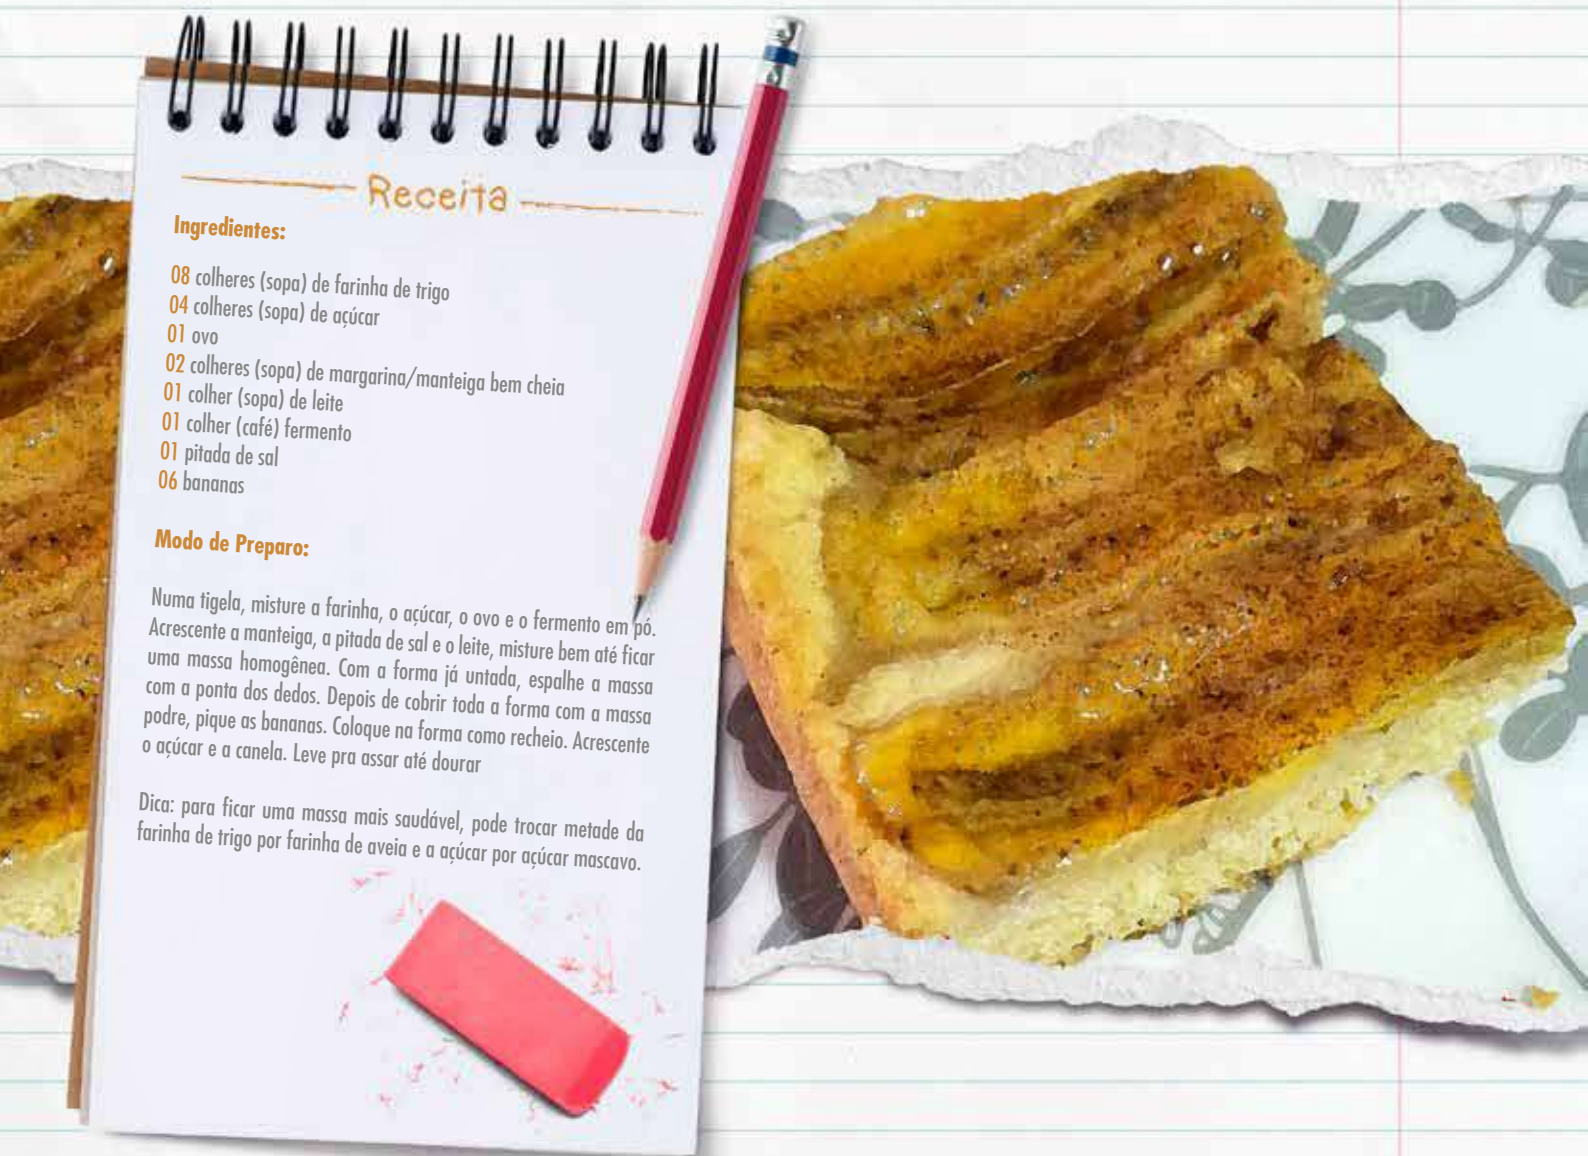 Receita
Ingredientes:
08 colheres (sopa) de farinha de trigo
04 colheres (sopa) de açúcar
01 ovo
02 colheres (sopa) de margarina/manteiga bem cheia
01 colher (sopa) de leite
01 colher (café) fermento
01 pitada de sal
06 bananas
Modo de Preparo:
Numa tigela, misture a farinha, o açúcar, o ovo e o fermento em pó.
Acrescente a manteiga, a pitada de sal e o leite, misture bem até ficar
uma massa homogênea. Com a forma já untada, espalhe a massa
com a ponta dos dedos. Depois de cobrir toda a forma com a massa
podre, pique as bananas. Coloque na forma como recheio. Acrescente
o açúcar e a canela. Leve pra assar até dourar
Dica: para ficar uma massa mais saudável, pode trocar metade da
farinha de trigo por farinha de aveia e a açúcar por açúcar mascavo.